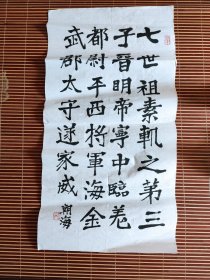 七世祖素軌之第三
子晉明帝寧中臨羌
都尉平西將軍海金
武郡太守遂家威